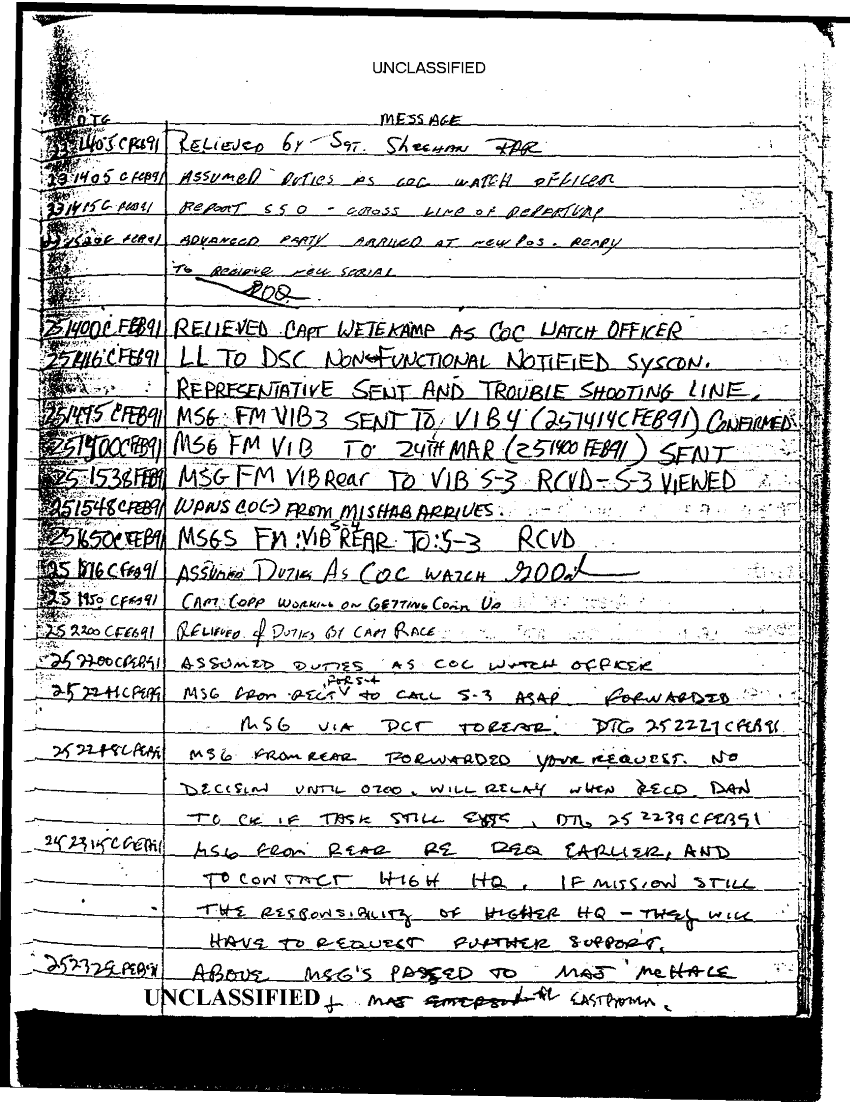 UNCLASSIFIED
DTG MESSAGE
231405CFEB91 RELIEVED BY SGT. SHEEHAN
231405CFEB91 ASSUMED DUTIES AS COC WATCH OFFICER
231415C FEB91 REPORT 550 - CROSS LINE OF DEPARTURE
FEB91 ADVANCED PARTY ARRIVED AT NEW POS. READY
TO RECEIVE NEW SERIAL
251400C FEB91 RELIEVED CAPT WETEKAMP AS COC WATCH OFFICER
251416CFEB91 LL TO DSC NON-FUNCTIONAL NOTIFIED SYSCON.
REPRESENTATIVE SENT AND TROUBLE SHOOTING LINE.
CFEB91 MSG FM VIB3 SENT TO VIB4 (251414CFEB91) CONFIRMED
MSG FM VIB TO 24TH MAR (251400 FEB91) SENT
251538FEB91 MSG FM VIB Rear TO VIB S-3 RCVD - S-3 VIEWED
251548CFEB91 WPNS CO(-) FROM MISHAB ARRIVES.
251650CFEB91 MSGS FM: VIB REAR S-4 TO: S-3 RCVD
CFEB91 ASSUMED DUTIES AS COC WATCH
25 1950 CFEB91 CAPT COPP WORKING ON GETTING COMM UP
252200CFEB91 RELIEVED of DUTIES BY CAPT RACE
252200CFEB91 ASSUMED DUTIES AS COC WATCH OFFICER
FOR S-4
252241CFEB91 MSG FROM TO CALL S-3 ASAP FORWARDED
MSG VIA DCT TO REAR. DTG 252227CFEB91
252248CFEB91 MSG FROM REAR FORWARDED YOUR REQUEST. NO
DECISION UNTIL 0700. WILL RELAY WHEN RECD. DAN
TO CK IF TASK STILL EXISTS. DTG 252239CFEB91
252315CFEB91 MSG FROM REAR RE REQ EARLIER, AND
TO CONTACT HIGH HQ. IF MISSION STILL
THE RESPONSIBILITY OF HIGHER HQ - THEY WILL
HAVE TO REQUEST FURTHER SUPPORT.
252325CFEB91 ABOVE MSG'S PASSED TO MAJ McHALE
UNCLASSIFIED + MAJ